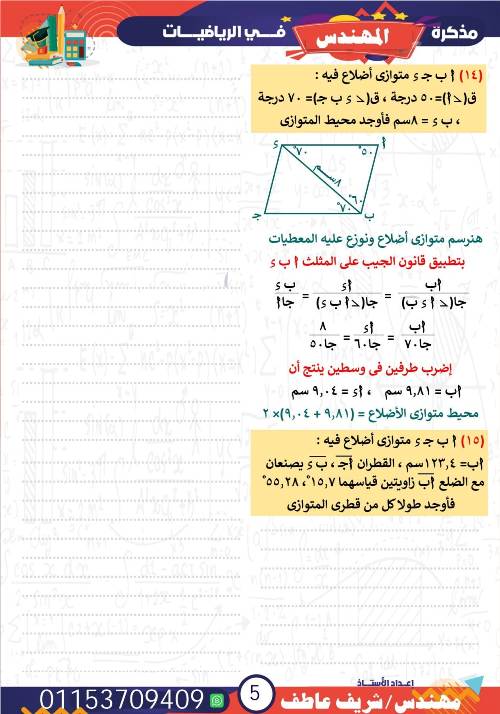 مذكرة المهندس في الرياضيات
(١٤) أ ب جـ ء متوازى أضلاع فيه :
ق(د أ)=٥٠ درجة ، ق(د ء ب جـ)= ٧٠ درجة
، ب ء = ٨سم فأوجد محيط المتوازى
ء ٧٠° ٥٠° أ
٨سم
٦٠°
جـ ٧٠° ب
هنرسم متوازى أضلاع ونوزع عليه المعطيات
بتطبيق قانون الجيب على المثلث أ ب ء
أب / جا(د أ ء ب) = أء / جا(د أ ب ء) = ب ء / جاأ
أب / جا٧٠ = أء / جا٦٠ = ٨ / جا٥٠
إضرب طرفين فى وسطين ينتج أن
أب = ٩,٨١ سم ، أء = ٩,٠٤ سم
محيط متوازى الأضلاع = (٩,٨١ + ٩,٠٤)× ٢
(١٥) أ ب جـ ء متوازى أضلاع فيه :
أب= ١٢٣,٤سم ، القطران أجـ ، ب ء يصنعان
مع الضلع أب زاويتين قياسهما ١٥,٧° ، ٥٥,٢٨°
فأوجد طولا كل من قطرى المتوازى
إعداد الأستاذ
مهندس/ شريف عاطف
5
01153709409